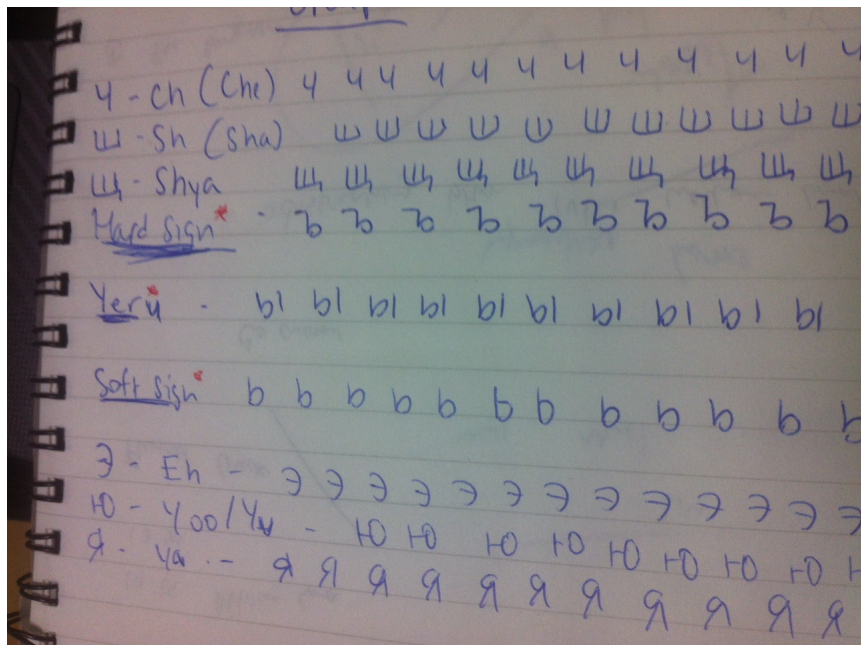 Ч - Ch (Che) Ч Ч Ч Ч Ч Ч Ч Ч Ч Ч Ч Ч
Ш - Sh (Sha) Ш Ш Ш Ш Ш Ш Ш Ш Ш Ш Ш
Щ - Shya Щ Щ Щ Щ Щ Щ Щ Щ Щ Щ
Hard Sign* - Ъ Ъ Ъ Ъ Ъ Ъ Ъ Ъ Ъ Ъ
Yeru* - Ы Ы Ы Ы Ы Ы Ы Ы Ы Ы
Soft Sign* Ь Ь Ь Ь Ь Ь Ь Ь Ь Ь Ь Ь
Э - Eh - Э Э Э Э Э Э Э Э Э Э Э Э Э
Ю - Yoo/Yu - Ю Ю Ю Ю Ю Ю Ю Ю
Я - Ya - Я Я Я Я Я Я Я Я Я Я Я